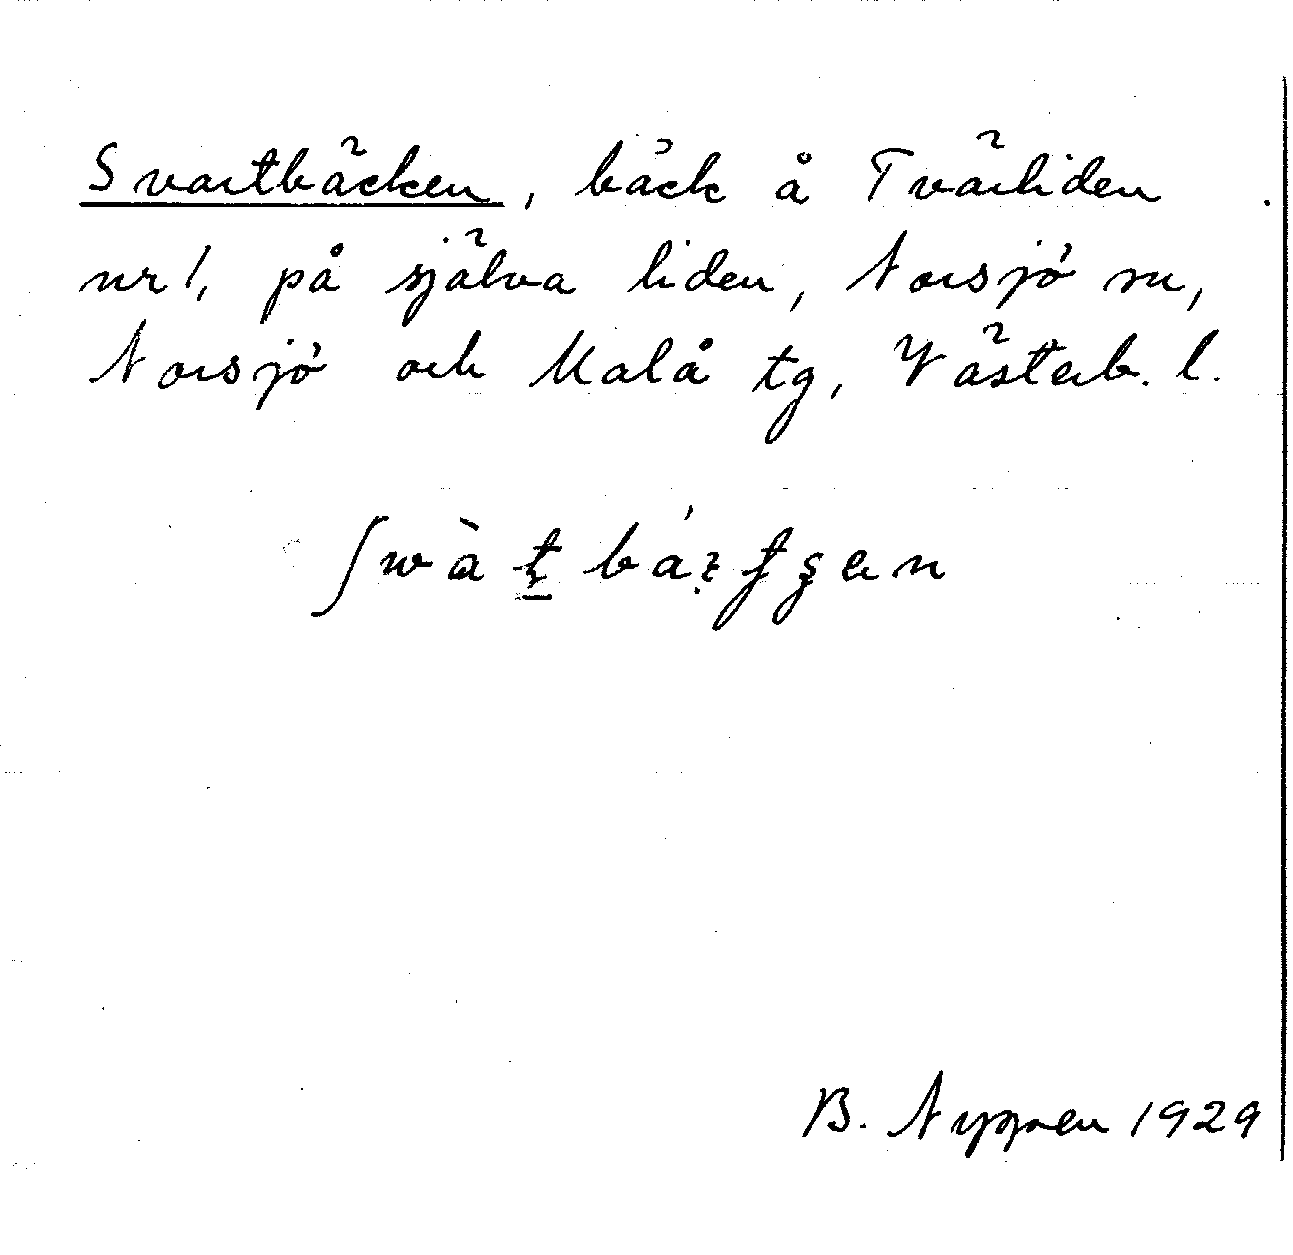 Svartbäcken, bäck å Tvärliden
nr 1, på själva liden, Norsjö sn,
Norsjö och Malå tg, Västerb. l.
B. Nygren 1929